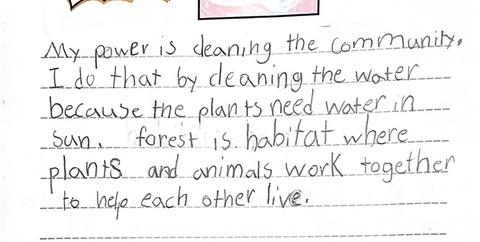 My power is cleaning the community.
I do that by cleaning the water
because the plants need water in
sun. forest is habitat where
plants and animals work together
to help each other live.